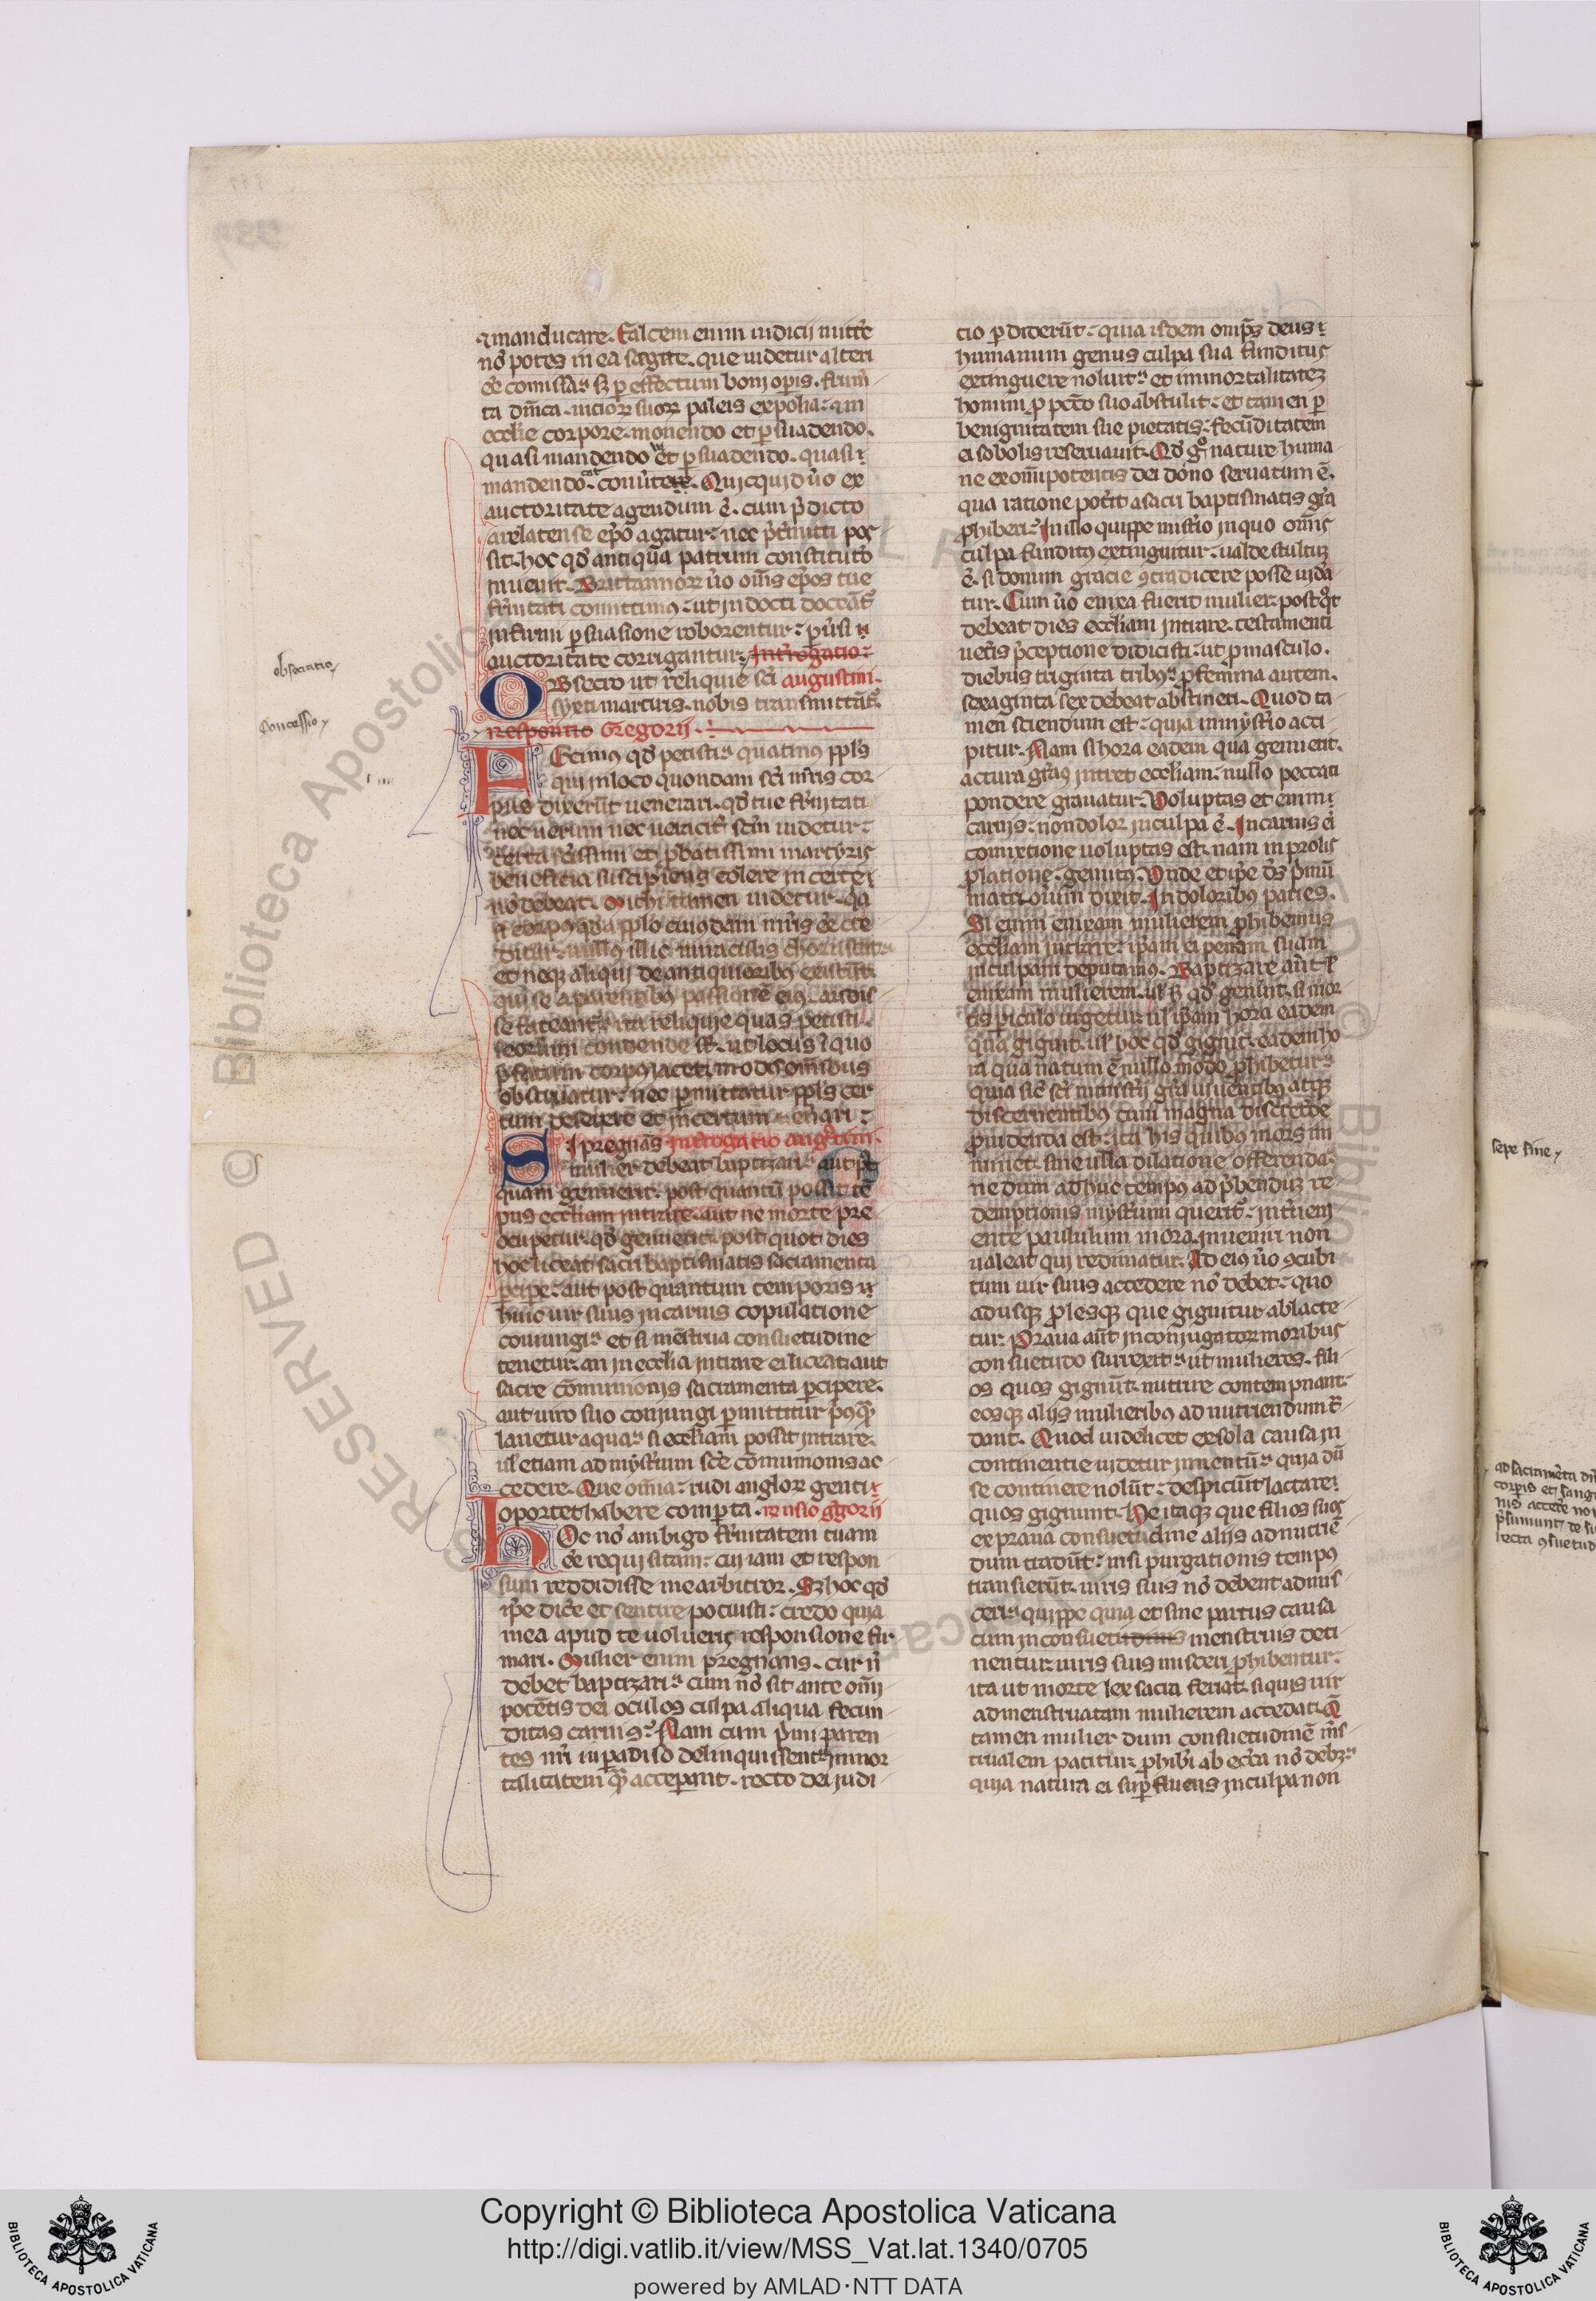 ⁊manducare. Falcem enim iudicij mitt͛e
nō potes in ea segete. que uidetur alteri
eē comissa. sꝫ ꝑ effectum boni oꝑis. frum-
ta dn̄ica. uicioꝝ suoꝝ paleis expolia. ⁊ in
ecclie corpore. monendo et ꝑsuadendo.
quasi mandendo et ꝑsuadendo. quasi
mandendo. conu͛te. Quicquid ůo ex
auctoritate agendum ē. cum p̄dicto
arelatense ep̄o agatur. nec p̄t͛mitti pos-
sit. hoc qd̄ antiqua patrum constituto
inuenit. Brittannoꝝ ůo om̄s ep̄os tue
fr̄nitati comittimꝰ. ut indocti doceāt͛
infirmi ꝑsuasione roborentur. ꝑu͛si
auctoritate corrigantur. Int͛rogatio
OBsecro ut reliquie sc̄i augustini.
syxti martiris. nobis transmittāt͛.
Responsio Gregorij.
FEcimꝰ qd̄ petisti. quatinꝰ ppl̄s
qui in loco quondam sc̄i mr̄is cor-
pus dixerūt uenerari. qd̄ tue fr̄nitati
nec uerum nec ueracit͛ sc̄m uidetur.
certa sc̄issimi et ꝓbatissimi martyris
beneficia suscipiens colere incerta
nō debeat. Michi tamen uidetur. qa
si corpꝰ qd̄ a ppl̄o cuiusdam mr̄is eē cre-
ditur. nullis illic miraculis choruscat.
et neqꝫ aliqui de antiquioribꝰ existūt.
qui se a parentibꝰ passionē eiꝰ audis-
se fateant͛. ita reliquie quas petisti.
seorsum condende st̄. ut locus ī quo
p̄fatum corpꝰ iacet. modis om̄ibus
obstruatur. nec ꝑmittatur ppl̄s cer-
tum deserere et incertum uenari.
SI pregnās Int͛rogatio augustini.
mulier debeat baptizari. aut pꝰt
quam genuerit. post quantū possit tē-
pus eccl̄iam intrare. aut ne morte pre-
ocupetur. qd̄ genuerit. post quot dies
hoc liceat sacri baptismatis sacramenta
ꝑciꝑe. aut post quantum temporis
huic uir suus in carnis copulatione
coniungi. et si mēstrua consuetudine
tenetur. an in ecclia intrare ei liceat. aut
sacre cōmunionis sacramenta ꝑcipere.
aut uiro suo coniungi ꝑmittitur.
lauetur aqua. si eccl̄iam possit intrare.
ul̄ etiam ad myst͛ium sc̄e cōmunionis ac-
cedere. Que om̄ia. rudi angloꝝ genti
oportet habere comꝑta. R̄nsio g͛gorij
HOc nō ambigo fr̄nitatem tuam
eē requisitam. cui iam et respon-
sum reddidisse me arbitror. Sꝫ hoc qd̄
ip̄e dic͛e et sentire potuisti. credo quia
mea apud te uolueris responsione fir-
mari. Mulier enim pregnans. cur n̄
debet baptizari. cum nō sit ante om̄i-
potētis dei oculos culpa aliqua fecun-
ditas carnis. Nam cum p͛mi paren-
tes nr̄i in ꝑadiso delinquissent. inmor-
talitatem qͣm acceꝑant. recto dei iudi-
cio ꝑdiderūt. quia isdem omp̄s deus
humanum genus culpa sua funditus
extinguere noluit. et inmortalitatē
homini ꝓ pcc̄o suo abstulit. et tamen ꝑ
benignitatem sue pietatis. fecūditatem
ei sobolis reseruauit. Qd̄ gͦ nature huma-
ne ex om̄ipotentis dei dono seruatum ē.
qua ratione pot͛it a sacri baptismatis gr̄a
ꝓhiberi. In illo quippe mist͛io in quo om̄is
culpa funditꝰ extinguitur. ualde stultū
ē. si donum gracie ꝯtradicere posse uidea-
tur. Cum ůo enixa fuerit mulier. post qͦt
debeat dies eccl̄iam intrare. testamenti
uet͛is p̄ceptione didicisti. ut ꝓ masculo.
diebus triginta tribꝰ. ꝓ femina autem.
sexaginta sex debeat abstineri. Quod ta-
men sciendum est. quia in myst͛io acci-
pitur. Nam si hora eadem qua genuerit.
actura gr̄as intret eccl̄iam. nullo peccati
pondere grauatur. Voluptas et enim
carnis. non dolor in culpa ē. In carnis ei
comixtione uoluptas est. nam in prolis
ꝓlatione. gemitꝰ. Vnde et ip̄e d̄s p͛mū
matri om̄ium dixit. In doloribꝰ paries.
Si enim enixam mulierem ꝓhibemus
eccl̄iam intrare. ip̄am ei penam suam
in culpam deputamꝰ. Baptizare aūt ul̄
enixam mulierem. ul̄ hꝫ qd̄ genuit. si mor-
tis ꝑiculo urgetur. ul̄ ip̄am hora eadem
qua gignit. ul̄ hoc qd̄ gignit. eadem ho-
ra qua natum ē. nullo modo ꝓhibetur.
quia sic sc̄i minist͛ij gr̄a uiuentibꝰ atqꝫ
discernentibꝰ cum magna discretōe
ꝓuidenda est. ita his quibꝰ mors im-
minet. sine ulla dilatione offerenda.
ne dum adhuc tempꝰ ad p̄bendū re-
demptionis myst͛ium querit͛. int͛ueni-
ente paululum mora. inueniri non
ualeat qui redimatur. Ad eiꝰ ůo ꝯcubi-
tum uir suus accedere nō debet. quo
adusqꝫ ꝓlesqꝫ que gignitur ablacte-
tur. Praua aūt in coniugatoꝝ moribus
consuetudo surrexit. ut mulieres. fili-
os quos gignūt. nutrire contempnant.
eosqꝫ alijs mulieribꝰ ad nutriendum t͛-
dant. Quod uidelicet ex sola causa in-
continentie uidetur inuentū. quia dū
se continere nolūt. despiciūt lactare.
quos gignunt. He itaqꝫ que filios suos
ex praua consuetudine alijs ad nutriē-
dum tradūt. nisi purgationis tempꝰ
transierūt. uiris suis nō debent admis-
ceri. quippe quia et sine partus causa
cum in consuetudinis menstruis deti-
nentur. uiris suis misceri ꝓhibentur.
ita ut morte lex sacra feriat. siquis uir
ad menstruatam mulierem accedat. Q̄
tamen mulier dum consuetudinē m̄s-
trualem patitur. ꝓhib͛i ab ecc̄ia nō debꝫ.
quia natura ei suꝑfluens in culpa non
obsecratio
Concessio
sepe sine
ad sacramēta
corporis et sang
nis acced͛e no
p̄sumunt de
lecta ꝯsuetud
Copyright © Biblioteca Apostolica Vaticana
http://digi.vatlib.it/view/MSS_Vat.lat.1340/0705
powered by AMLAD·NTT DATA
BIBLIOTECA APOSTOLICA VATICANA
BIBLIOTECA APOSTOLICA VATICANA